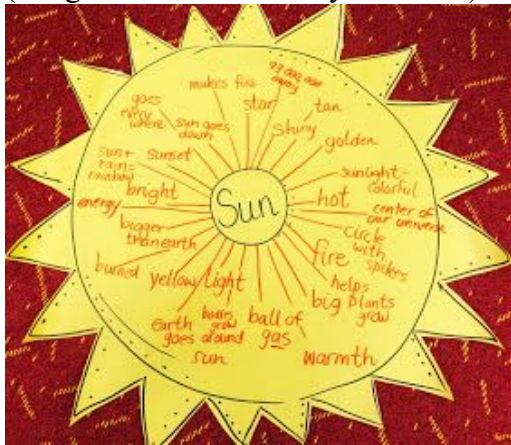 Sun
makes fire
93,000,000
away
star
tan
shiny
golden
sunlight-
colorful
hot
center of
our universe
circle
with
spikes
fire
helps
big plants
grow
warmth
ball of
gas
grow
earth
goes around
sun
light
yellow
burned
bigger
than earth
energy
bright
sun+
rain=
rainbow
sunset
sun goes
down
goes
every
where